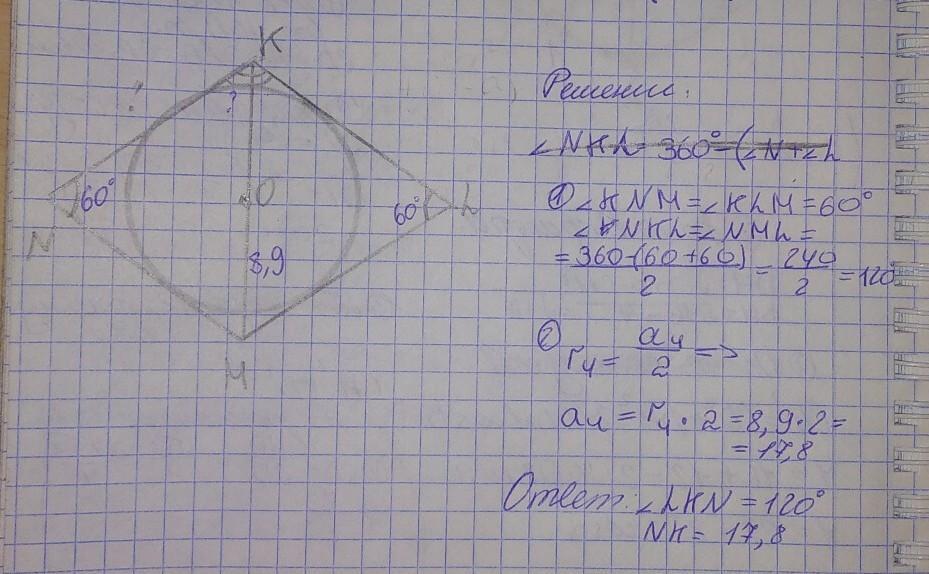 K
?
?
60°
O
60°
L
N
8,9
M
Решение:
∠NKL = 360° - (∠N + ∠L
① ∠KNM = ∠KLM = 60°
∠NKL = ∠NML =
= 360-(60+60) / 2 = 240 / 2 = 120°
② r₄ = a₄ / 2 =>
a₄ = r₄ · 2 = 8,9 · 2 =
= 17,8
Ответ: ∠LKN = 120°
NK = 17,8